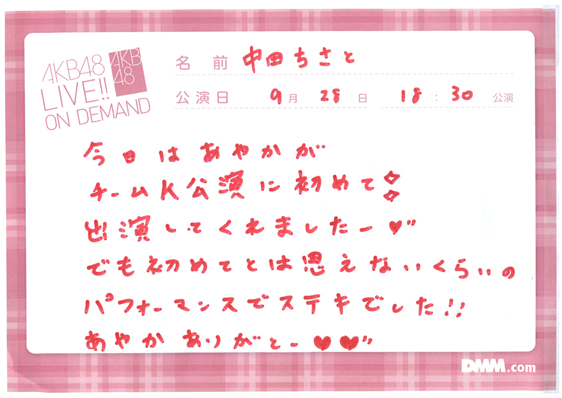 AKB48
LIVE!!
ON DEMAND
AKB
48
名前 中田ちさと
公演日 9月 28日 18:30 公演
今日はあやかが
チームK公演に初めて
出演してくれましたー♥"
でも初めてとは思えないくらいの
パフォーマンスでステキでした!!
あやかありがとー♥♥"
DMM.com